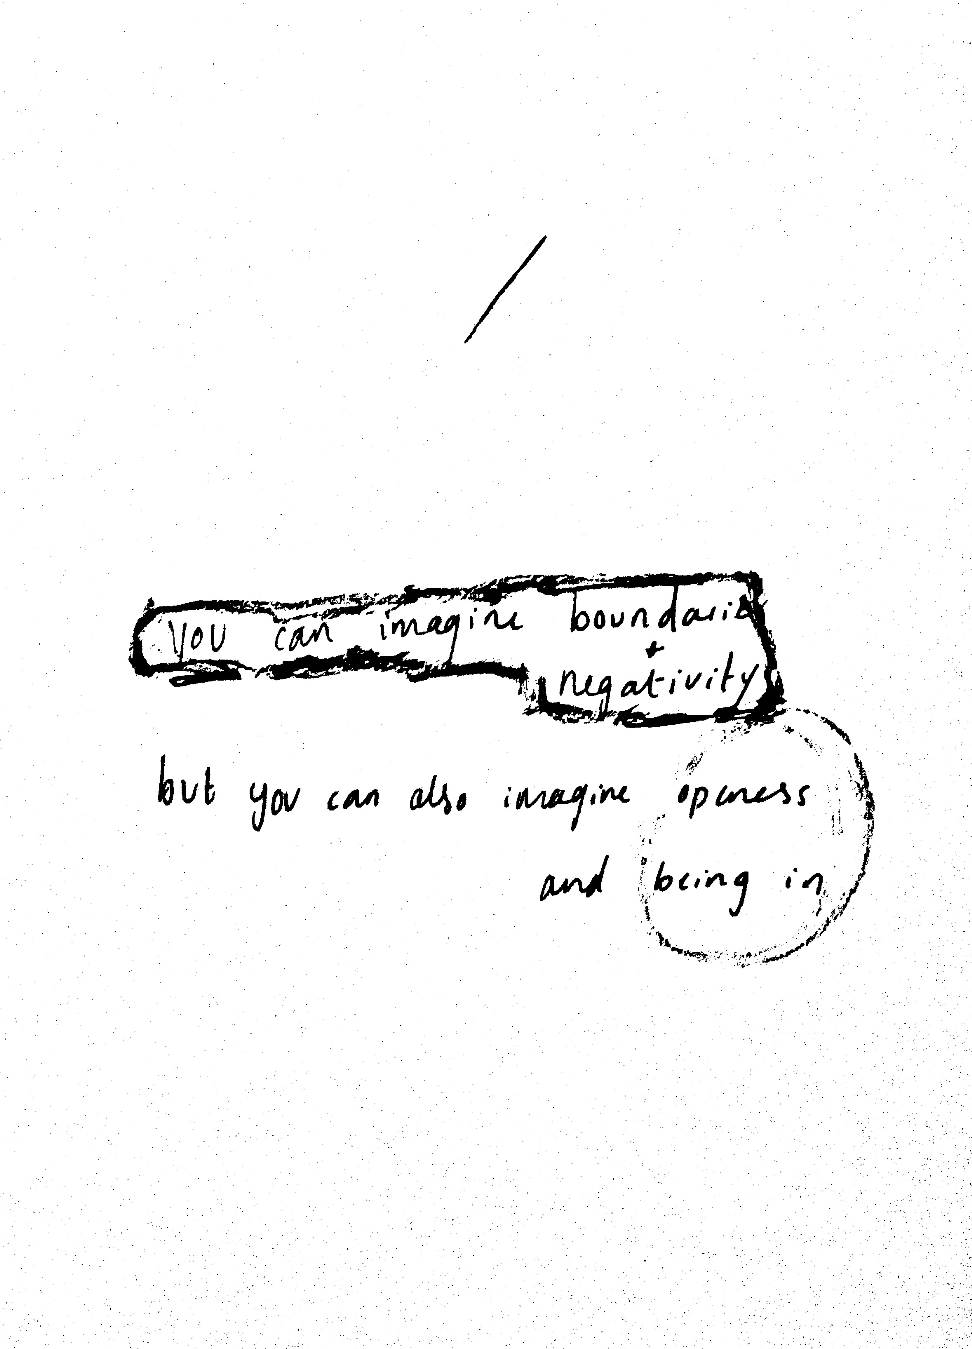 you can imagine boundaries
+
negativity
but you can also imagine openess
and being in